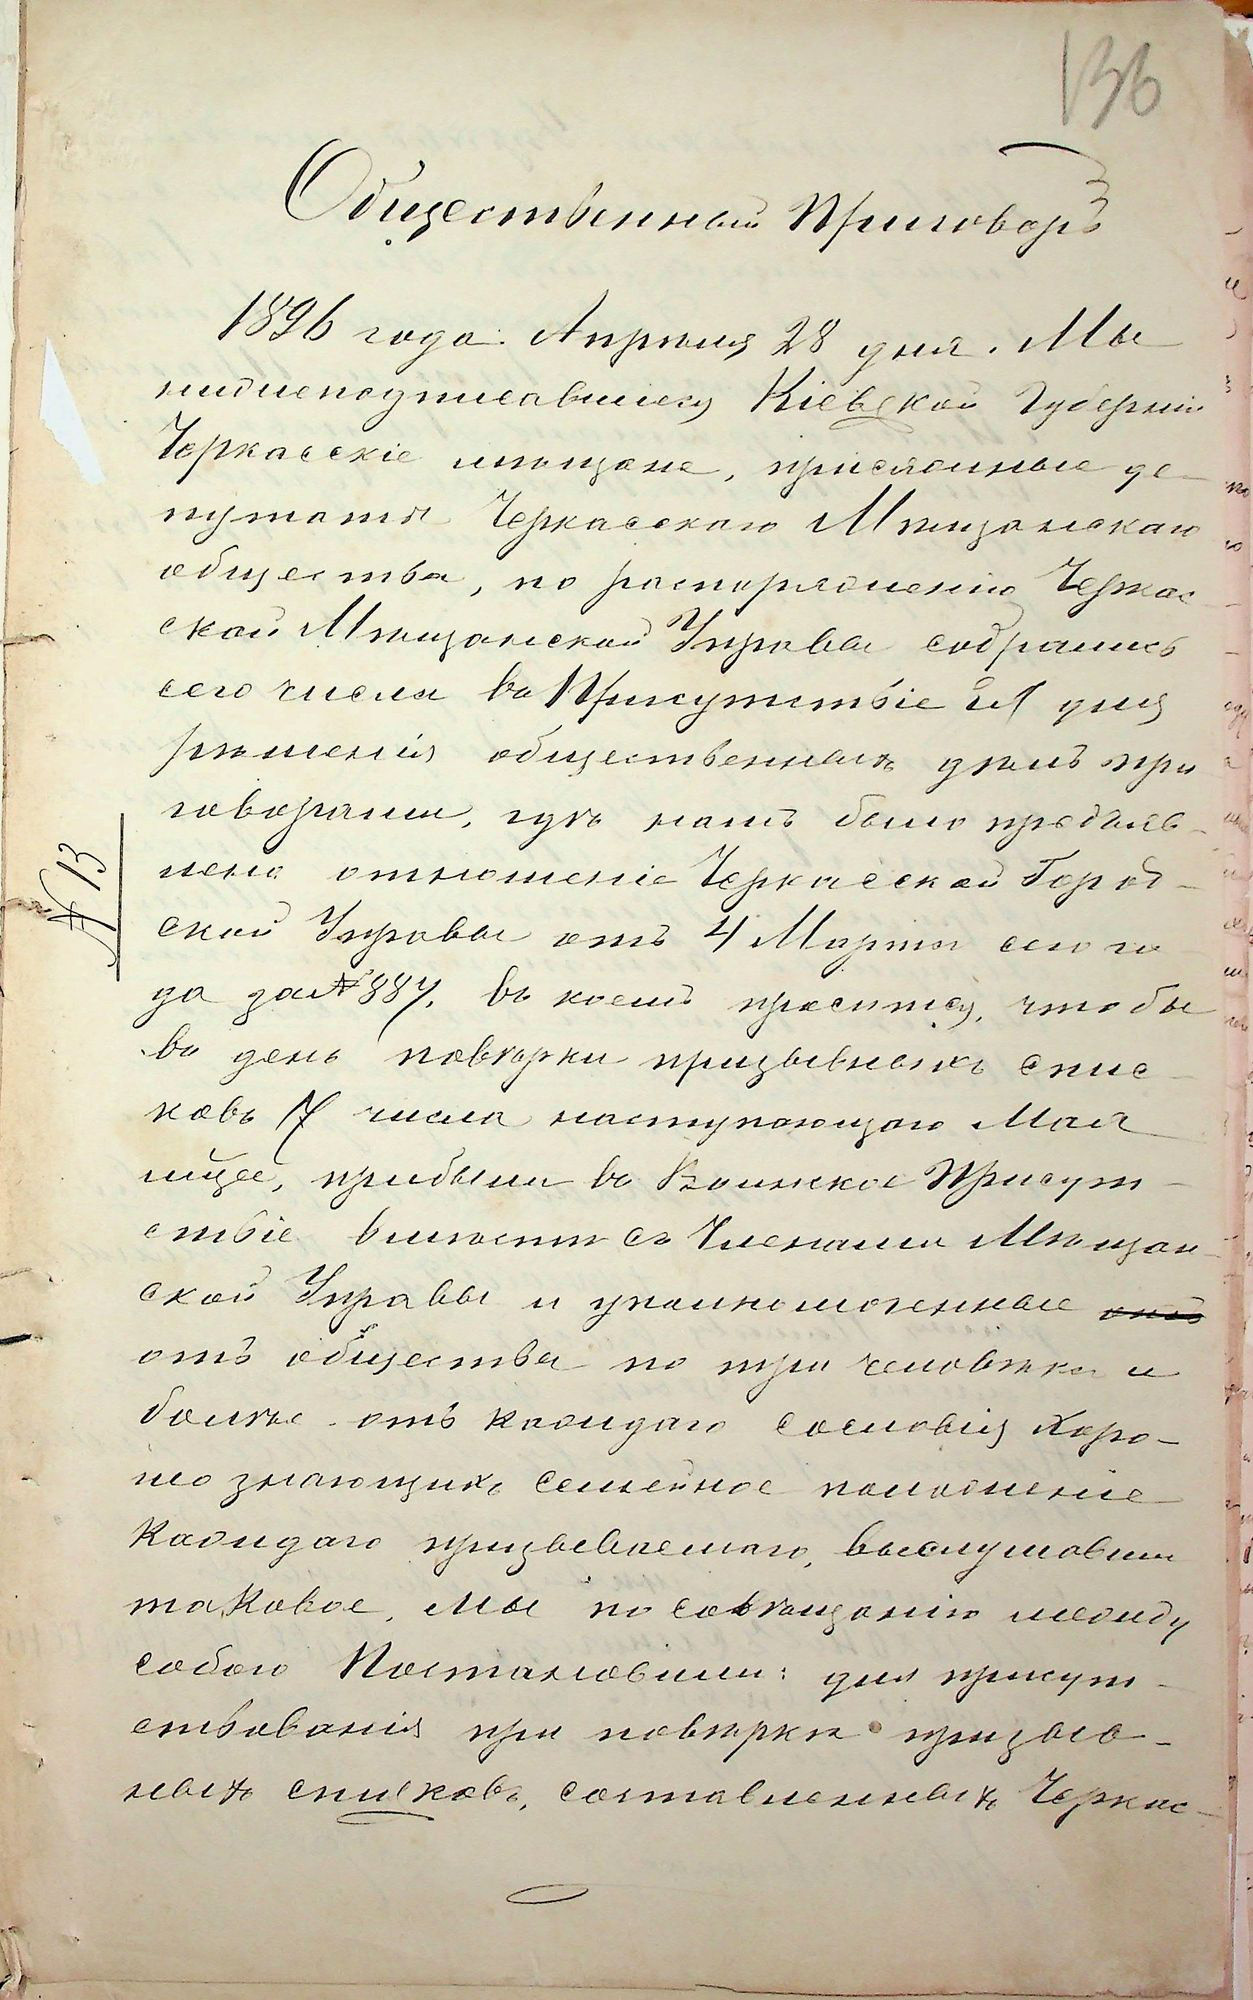 136
Общественный Приговоръ
1896 года Апрѣля 28 дня. Мы
нижеподписавшіеся Кіевской Губерніи
Черкасскіе мѣщане, присяжные де-
путаты Черкасскаго Мѣщанскаго
общества, по распоряженію Черкас-
ской Мѣщанской Управы собрались
сего числа въ Присутствіе ея для
рѣшенія общественныхъ дѣлъ при
говорами, гдѣ намъ было предъяв-
лено отношеніе Черкасской Город-
ской Управы отъ 4 Марта сего го-
да за № 887, въ коемъ просится, чтобы
въ день повѣрки призывныхъ спис-
ковъ 7 числа наступающаго Мая
мѣсяца, прибыли въ Воинское Присут-
ствіе вмѣстѣ съ Членами Мѣщан-
ской Управы и уполномоченные отъ
отъ общества по три человѣка и
болѣе отъ каждаго сословія хоро-
шо знающихъ семейное положеніе
каждаго призываемаго, выслушавши
таковое, мы по совѣщанію между
собою Постановили: для присут-
ствованія при повѣркѣ призыв-
ныхъ списковъ, составленныхъ Черкас-
№ 13